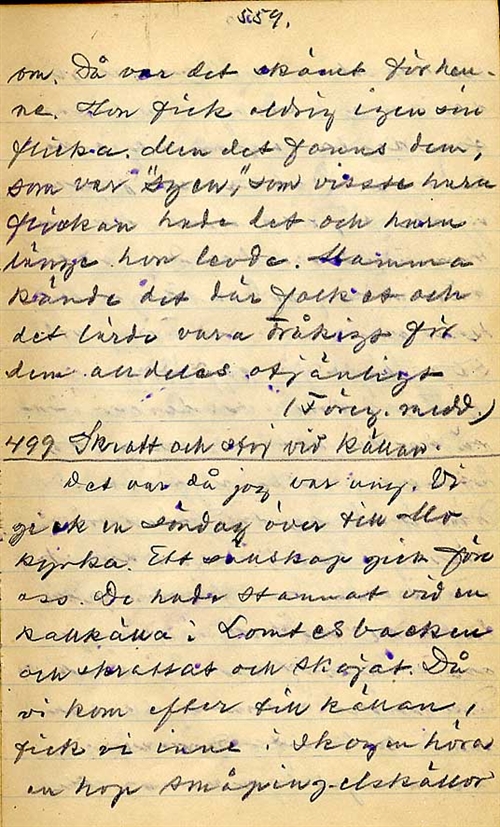 559.
om. Då var det skämt för hen-
ne. Hon fick aldrig igen sin
flicka. Men det fanns dem,
som var "syen", som visste huru
flickan hade det och huru
länge hon levde. Mamma
kände det där folket och
det lärde vara tråkigt för
dem alldeles otjänligt
(Föreg. medd.)
499 Skratt och stoj vid källan.
Det var då jag var ung. Vi
gick en söndag över till Mo
kyrka. Ett sällskap gick före
oss. De hade stannat vid en
kallkälla i Lomtesbacken
och skrattat och skojat. Då
vi kom efter till källan,
fick vi inne i skogen höra
en hop småpingelskällor